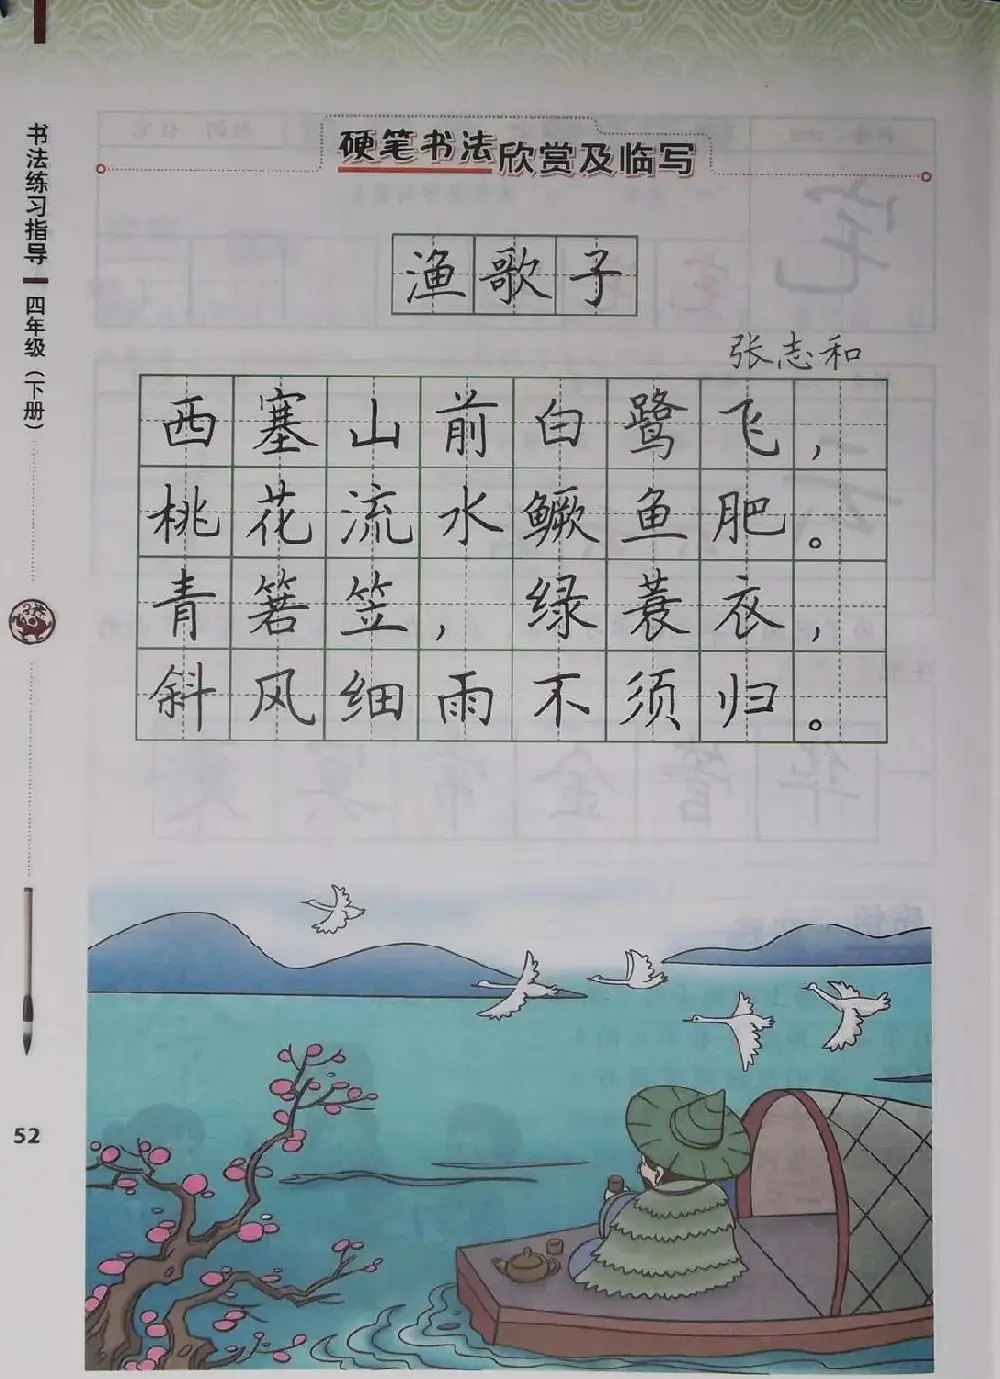 硬笔书法欣赏及临写
渔歌子
张志和
西塞山前白鹭飞，
桃花流水鳜鱼肥。
青箬笠，绿蓑衣，
斜风细雨不须归。
书法练习指导 四年级（下册）
52